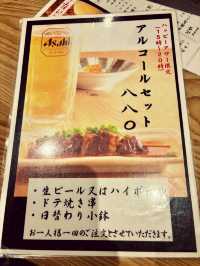 ハッピーアワー限定
(15時~20時)
アルコールセット
八八〇
Asahi
・生ビール又はハイボール
・ドテ焼き串
・日替わり小鉢
お一人様一回のご注文とさせていただきます。